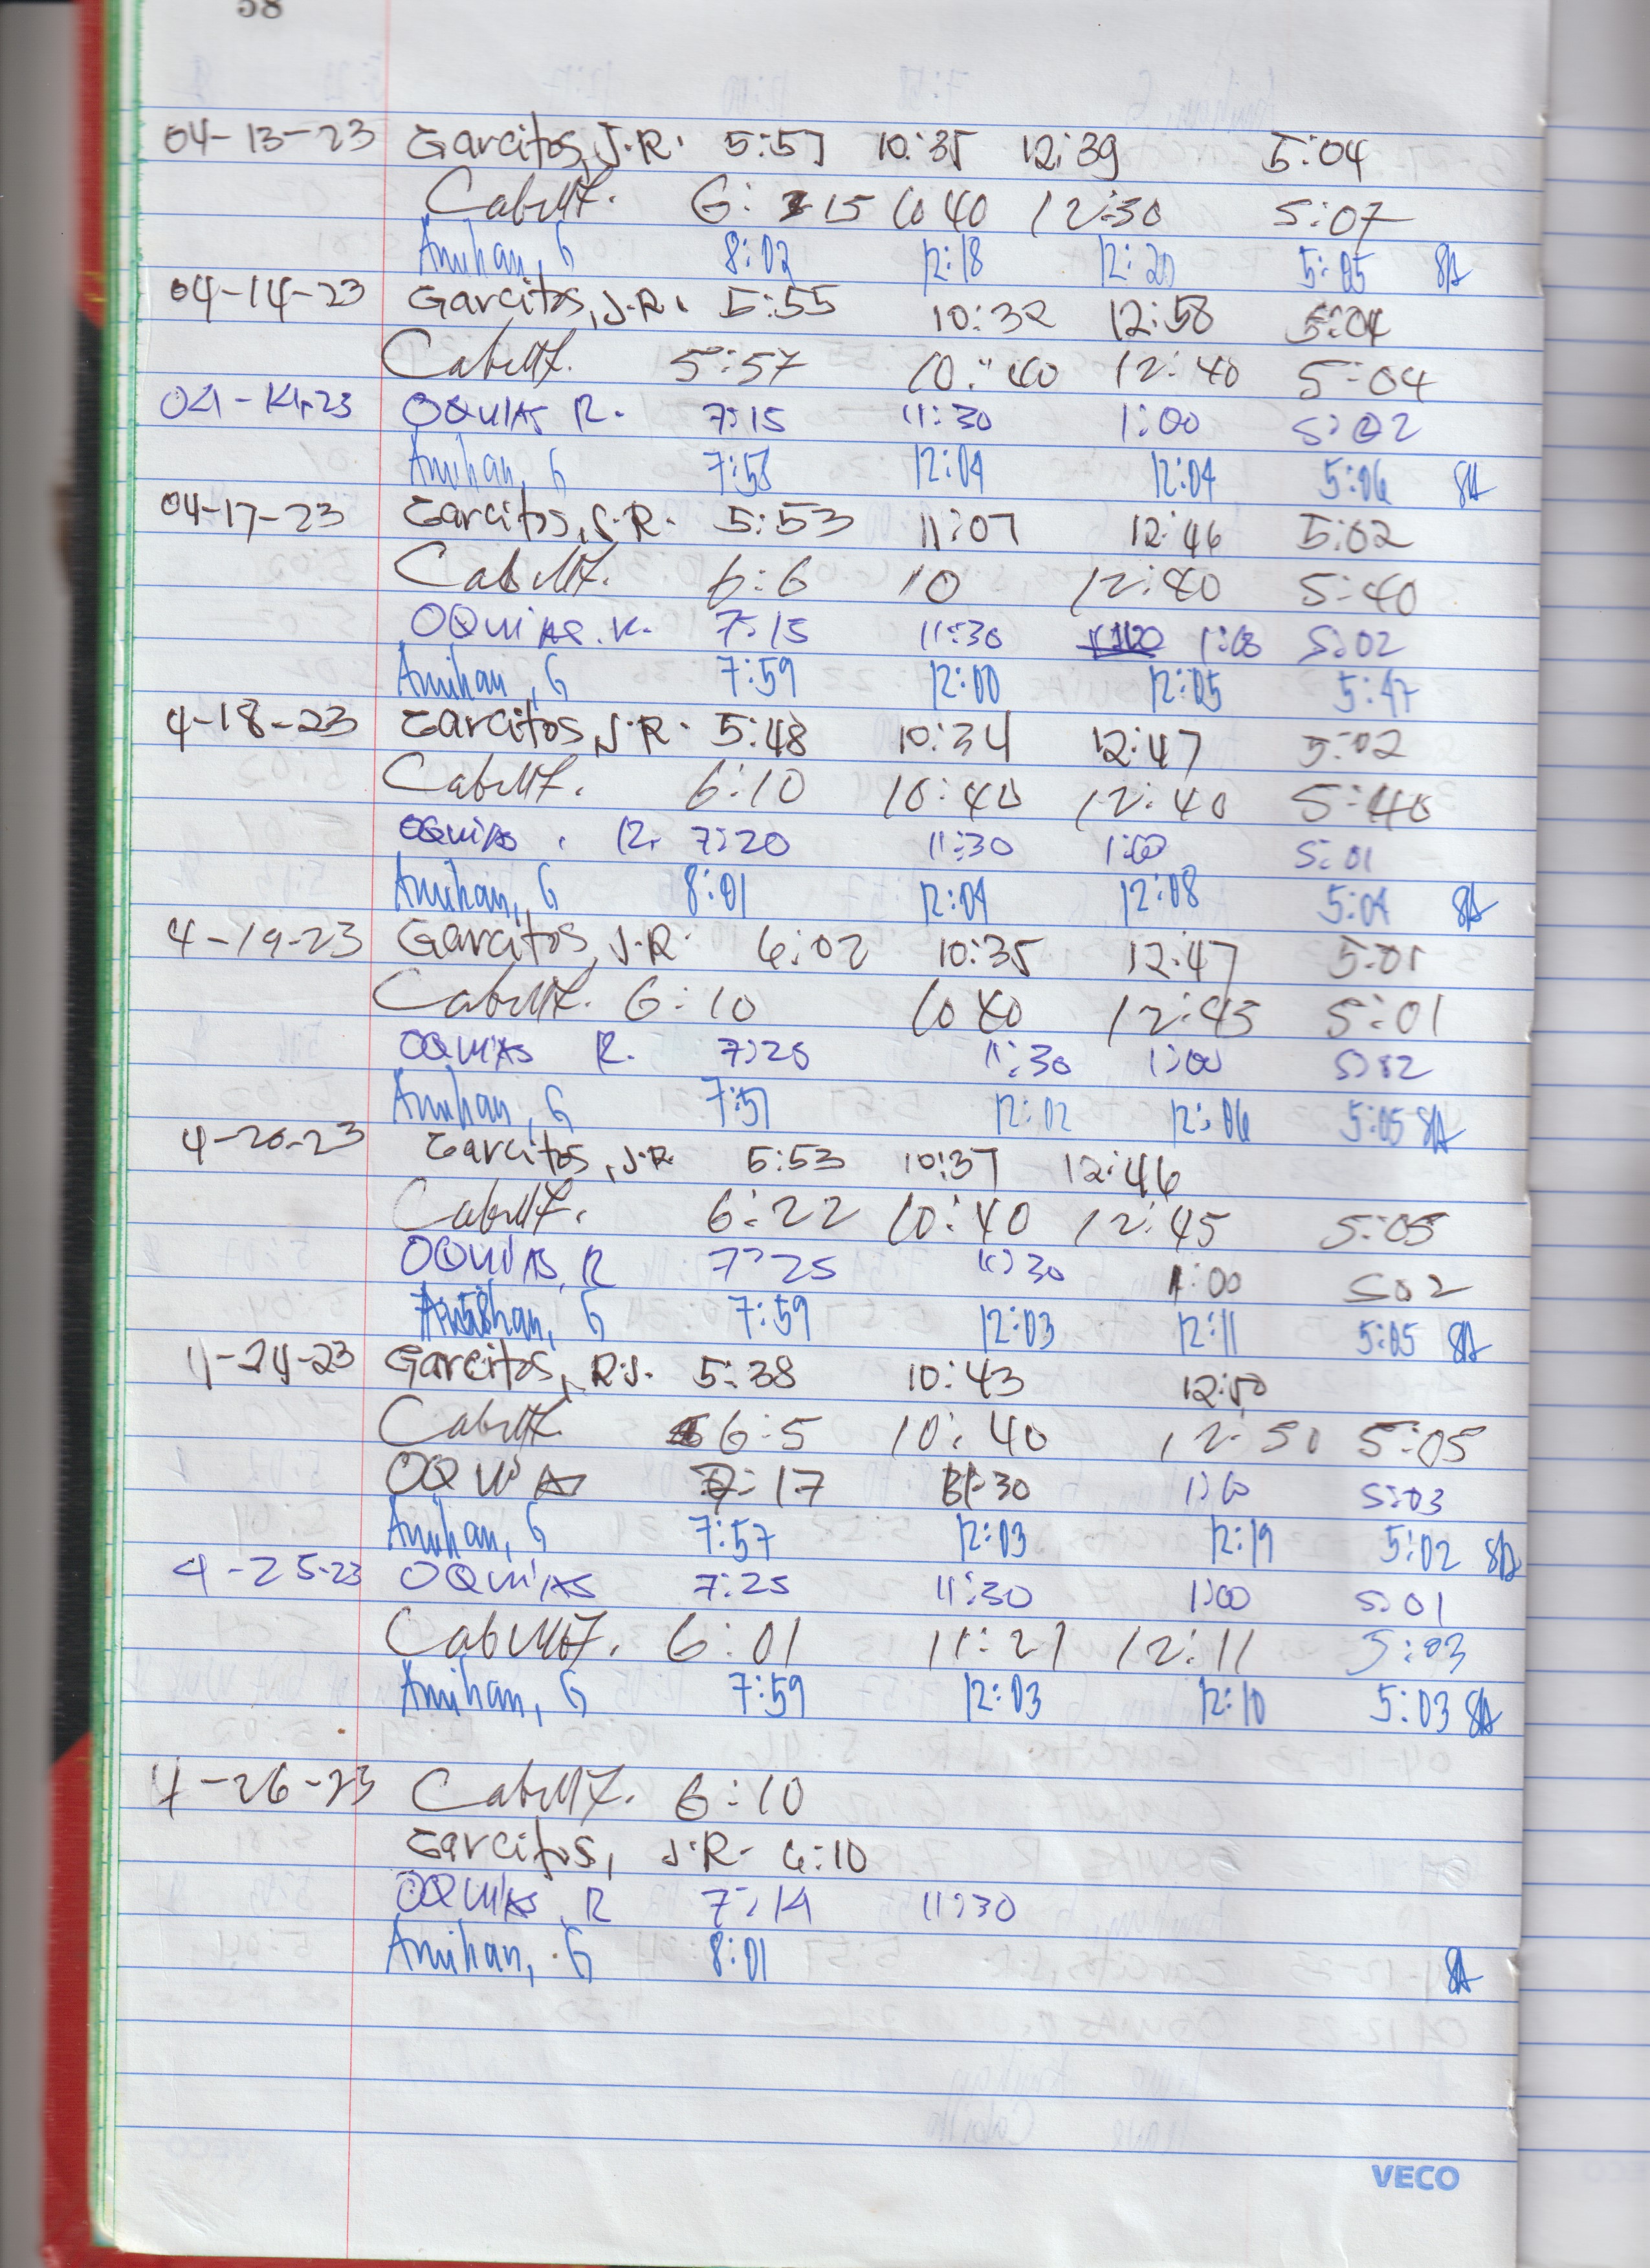 58
04-13-23 Garcitos, J.R. 5:57 10:35 12:39 5:04
6: 15 10 40 12:30 5:07
Amihan, G 8:02 12:18 12:20 5:05
04-14-23 Garcitos, J.R. 5:55 10:32 12:58 5:04
5:57 10:40 12:40 5:04
04-14-23 OQUIAS R. 7:15 11:30 1:00 5:02
Amihan, G 7:58 12:04 12:04 5:06
04-17-23 Garcitos, J.R. 5:53 11:07 12:46 5:02
6:6 10 12:40 5:40
OQUIAS. R. 7:15 11:30 1:03 5:02
Amihan, G 7:59 12:00 12:05 5:47
4-18-23 Garcitos, J.R. 5:48 10:34 12:47 5:02
6:10 10:40 12:40 5:40
OQUIAS, R. 7:20 11:30 1:00 5:01
Amihan, G 8:01 12:04 12:08 5:04
4-19-23 Garcitos, J.R. 6:02 10:35 12:47 5:01
6:10 10 40 12:45 5:01
OQUIAS R. 7:25 11:30 1:00 5:02
Amihan, G 7:57 12:02 12:06 5:05
4-20-23 Garcitos, J.R. 5:53 10:37 12:46
6:22 10:40 12:45 5:05
OQUIAS, R 7:25 11:30 1:00 5:02
Amihan, G 7:59 12:03 12:11 5:05
4-24-23 Garcitos, R.J. 5:38 10:43 12:50
6:5 10:40 12:50 5:05
OQUIAS 7:17 11:30 1:00 5:03
Amihan, G 7:57 12:03 12:19 5:02
4-25-23 OQUIAS 7:25 11:30 1:00 5:01
6:01 11:21 12:11 5:03
Amihan, G 7:59 12:03 12:10 5:03
4-26-23 6:10
Garcitos, J.R. 6:10
OQUIAS, R 7:14 11:30
Amihan, G 8:01
VECO